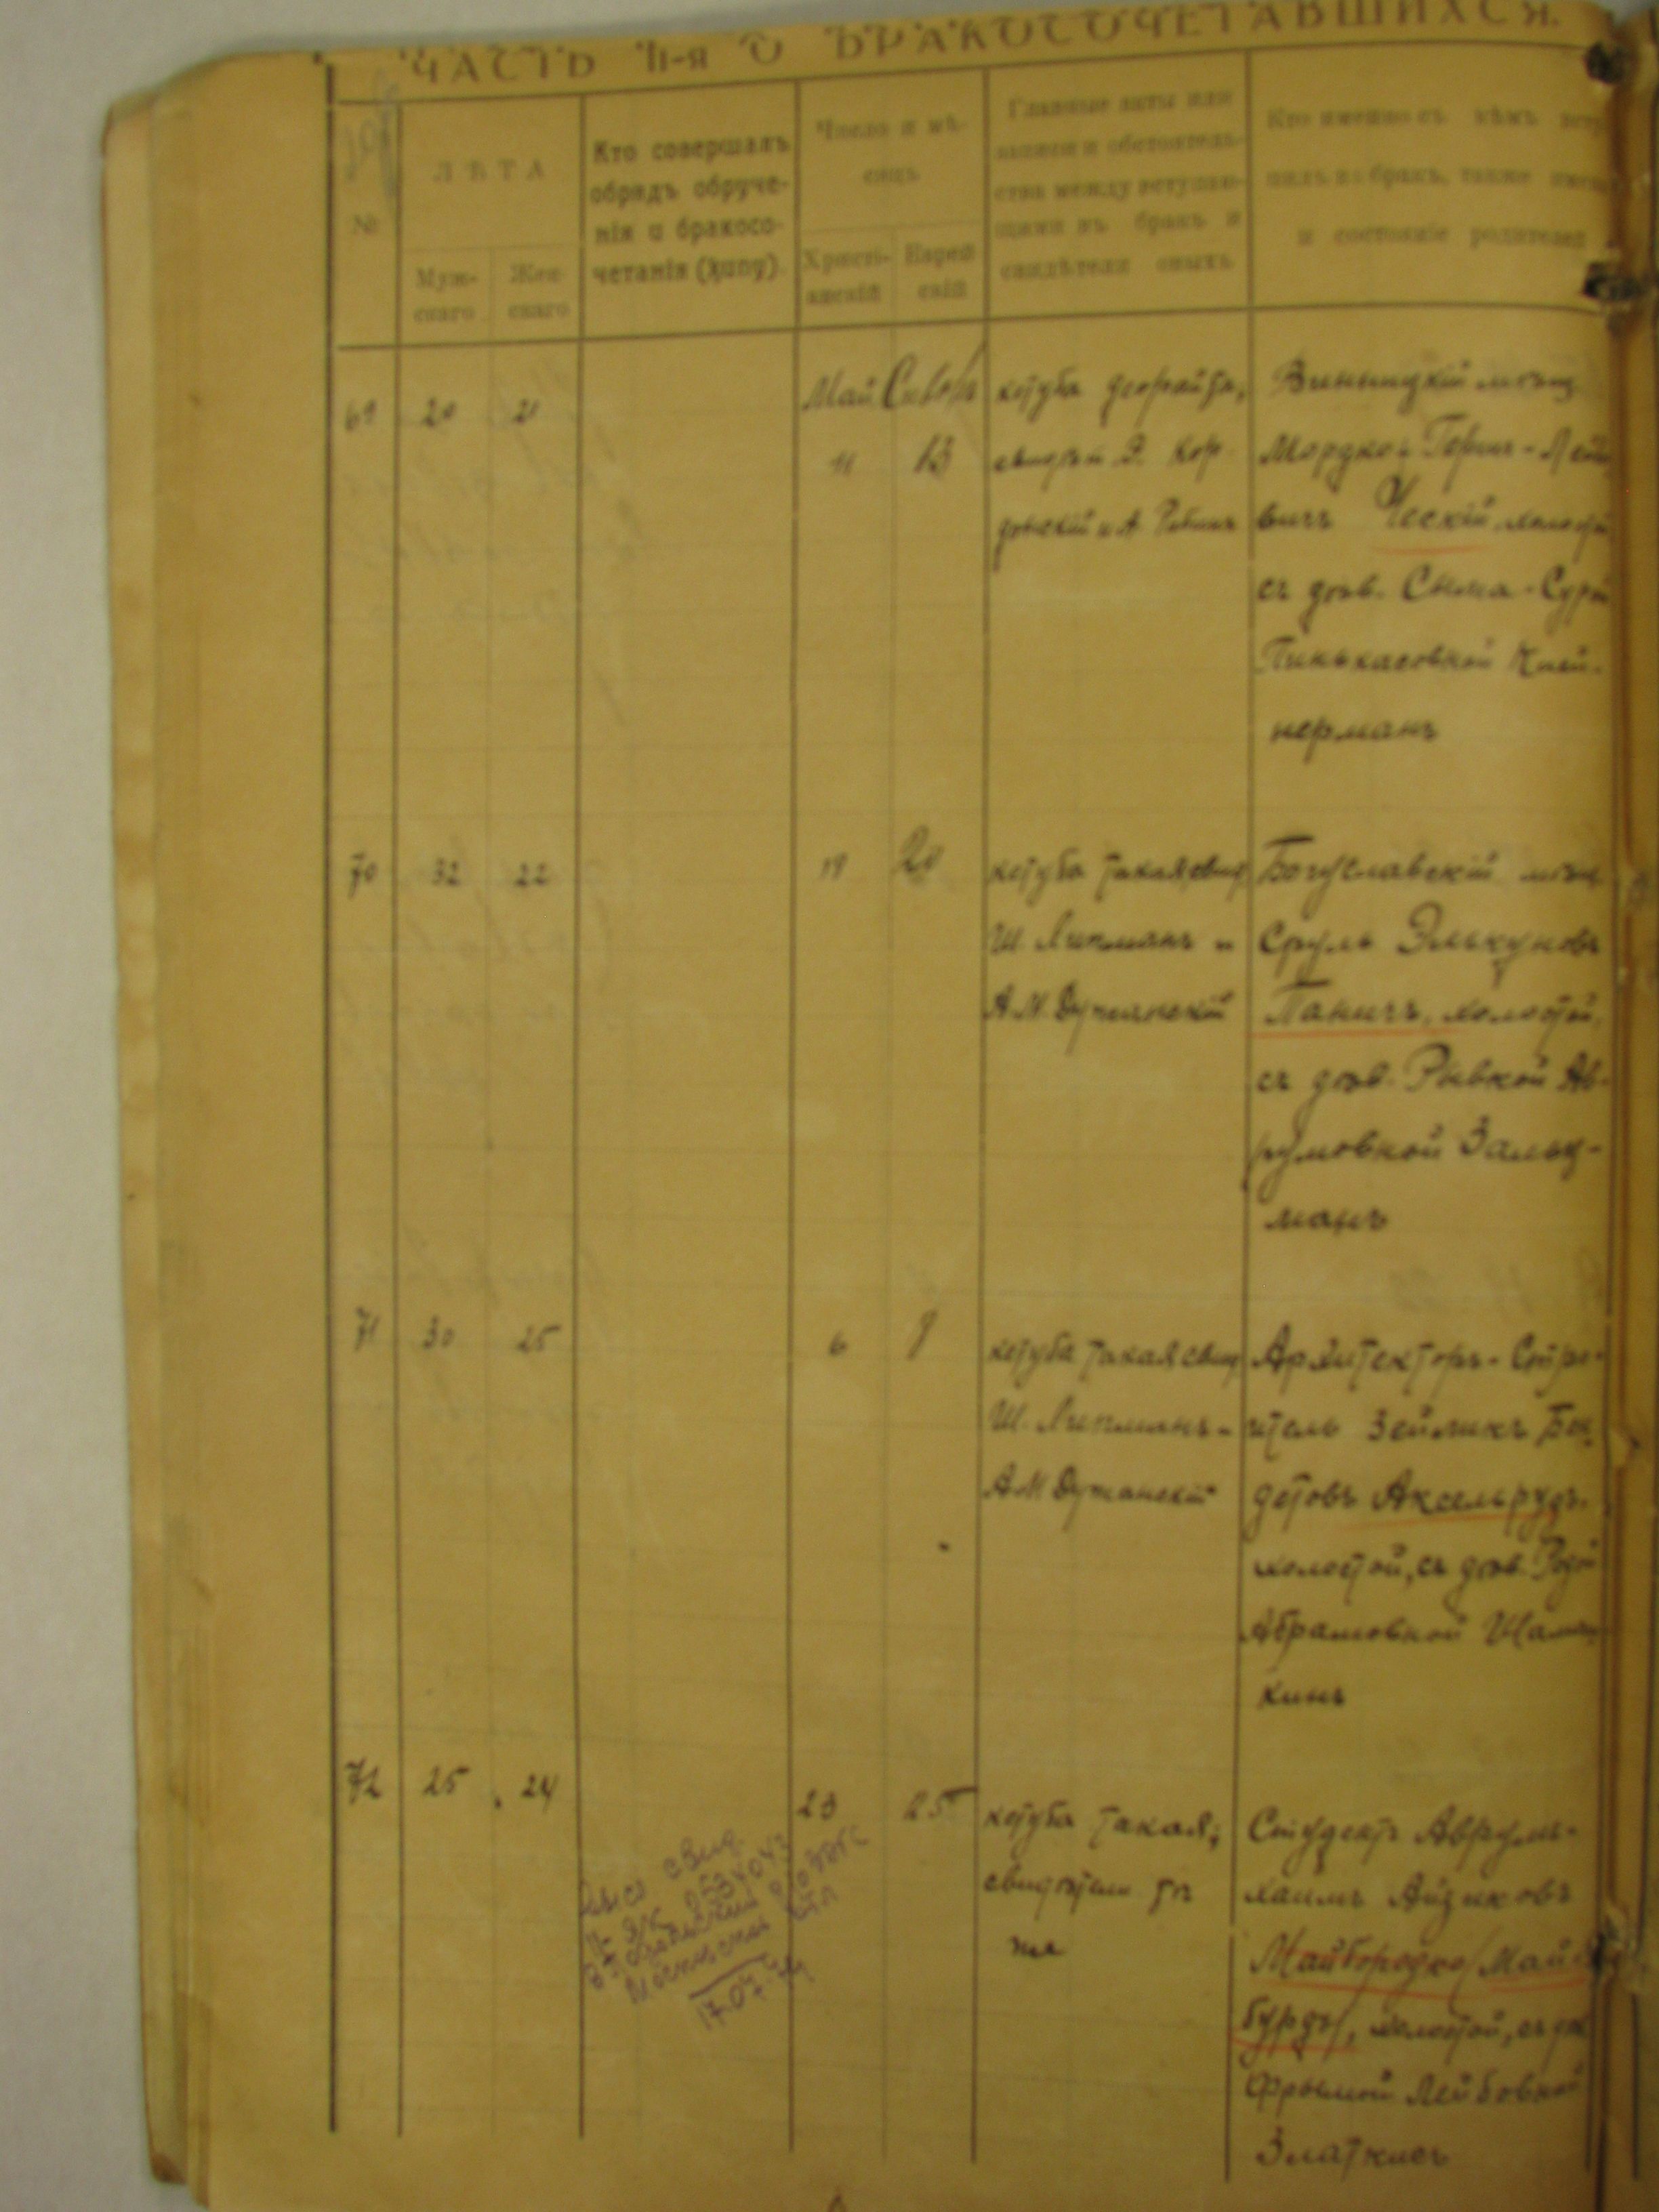 ЧАСТЬ II-я О БРАКОСОЧЕТАВШИХСЯ.
№
ЛѢТА
Муж-
скаго
Жен-
скаго
Кто совершалъ
обрядъ обруче-
нія и бракосо-
четанія (хупу).
Число и мѣ-
сяцъ
Христі-
анскій
Еврей
скій
Главные акты или
записи и обстоятель-
ства между вступаю-
щими въ бракъ и
свидѣтели оныхъ
Кто именно съ кѣмъ всту
пилъ въ бракъ, также имена
и состояніе родителей
69 20 21
Май
11 13
кетуба
Винницкій мѣщ.
Мордко-
вичъ Ческій, холостой
съ дѣв. Сыма-Сурой
Пинькасовной Клей-
нерманъ
70 32 22
18 20
кетуба такая, свид.
Ш. Липманъ и
А.М. Думанскій
Богуславскій мѣщ.
Сруль Элькуновъ
Паничъ, холостой,
съ дѣв. Рывкой Ав-
румовной Зальц-
манъ
71 30 25
6 8
кетуба такая, свид.
Ш. Липманъ и
А.М. Думанскій
Архитекторъ-Строи-
тель Зейликъ Бен-
детовъ Аксельрудъ,
холостой, съ дѣв.
Абрамовной
кинъ
72 25 24
23 25
кетуба такая;
свидѣтели тѣ
же
Студентъ Аврумъ-
хаимъ Айзиковъ
Майбородко (Май-
бурдъ), холостой, съ дѣв.
Фрымой Лейбовной
Златкисъ
свид.
17.07.74